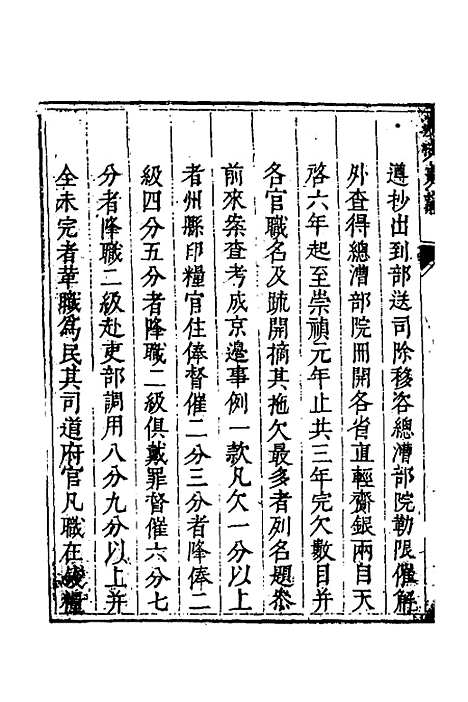 遵抄出到部送司除移咨總漕部院勒限催解
外查得總漕部院冊開各省直輕賫銀兩自天
啓六年起至崇禎元年止共三年完欠數目并
各官職名及䟽開摘其拖欠最多者列名題叅
前來案查考成京邊事例一款凡欠一分以上
者州縣印糧官住俸督催二分三分者降俸二
級四分五分者降職二級俱戴罪督催六分七
分者降職二級赴吏部調用八分九分以上并
全未完者革職爲民其司道府官凡職在